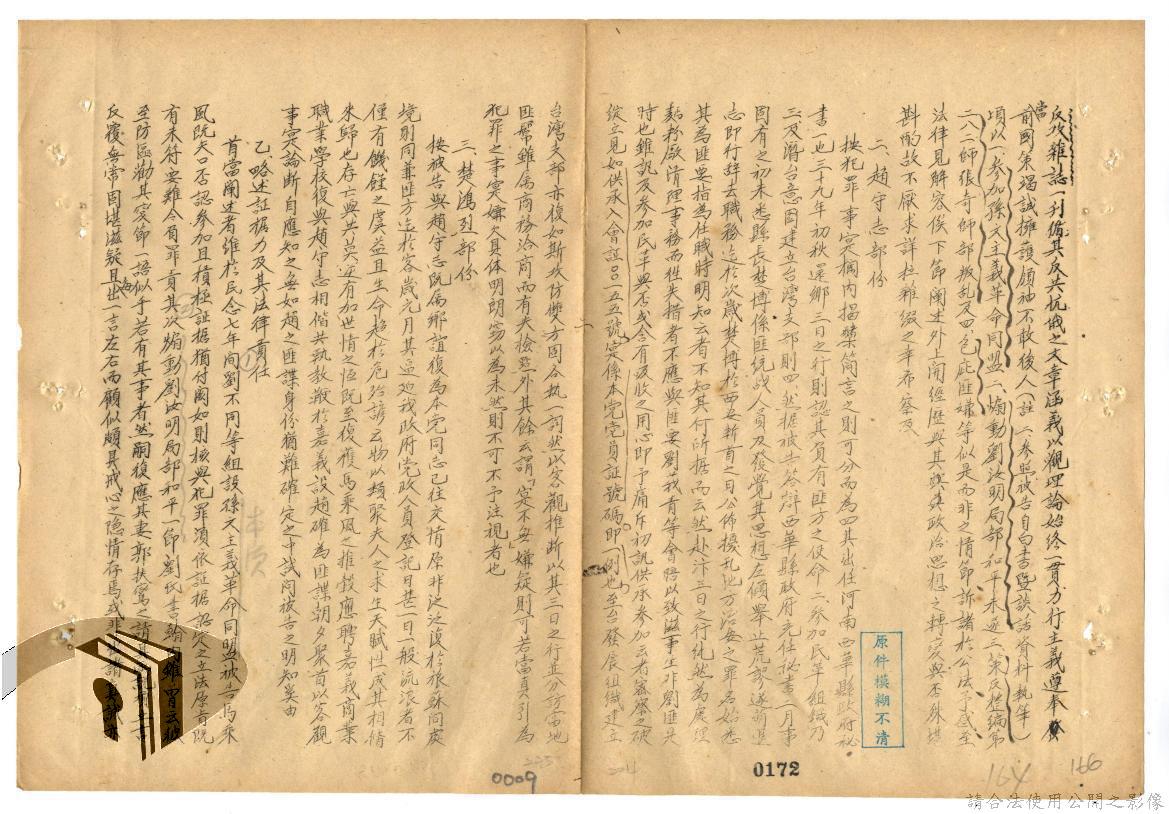 反攻雜誌刊脩其反共抗戰之文章涵義以觀理論始終一貫力行主義遵奉
當前國策竭誠擁護領袖不敢後人(註二參照被告自白書暨談話資料執筆)
項以一參加孫文主義革命同盟二煽動劉汝明局部和平未逆三策反整編第
二八二師張奇師部叛乱及四包庇匪嫌等似是而非之情節訴諸於公法予感至
法律見解容俟下節闡述外上開經歷與其政治思想之轉変與否殊堪
斟酌故不厭求詳拉雜綴之幸希察及
二、趙守志部份
按犯罪事実欄内揭櫫簡言之則可分而為四其出任河南西華縣政府秘
書一也三十九年初秋還鄉三日之行則認其負有匪方之使命二參加民革組織乃
三及潛台意圖建立台灣支部則四然据被告答辯西華縣政府充任秘書一月事
固有之初未悉縣長焚博係匪統战人員及發覺其思想左傾舉止荒謬遂萌退
志即行辞去職務迄於次歲焚博於西安斬首之日公佈擾乱地方治安之罪名始悉
其為匪要指為任職時明知云者不知其何所据而云然赴汴三日之行純然為処理
麩粉廠清理事務而往失措者不應與匪要劉我青等會晤以致滋事生非劉匪是
時也雖訊及參加民革與否或含有吸收之用心即予痛斥初訊供承參加云者審察之破
綻立見如供承入會証呂一五五號実係本党党員証號碼即一例也至台發展組織建立
台灣支部亦復如斯攻防雙方固各執一詞然以客觀推断以其三日之行其分訪亩地
匪幫雖属商務洽商而有失檢點外其餘云謂「寔不無嫌疑」則可若當真引為
犯罪之事実嫌欠具体明朗窃以為未然則不可不予注視者也
三、焚鴻烈部份
按被告與趙守志既属鄉誼復為本党同志已往交情原非泛泛復於旅蘇同處
境則同兼匪方迄於客歲元月其逼近我政府党政人員登記日甚一日一般流浪者不
僅有饑饉之虞益且生命趋於危殆諺云物以類聚夫人之求生天賦性成其相偕
來歸也存亡與共莫逆有加世情之恆既至復獲馬乘风之推轂應聘嘉義商業
職業學校復與趙守志相偕共執教鞭於嘉義設趙確為匪諜朝夕聚首以客觀
事実論断自應知之無如趙之匪諜身份猶難確定之中試问被告之明知奚由
乙、略述証据力及其法律責任
首當闡述者維於民念七年间劉不同等組設孫文主義革命同盟被告馬乘
風既矢口否認參加且積極証据猶付闕如則核與犯罪須依証据認定之立法原旨既
有未符実難令負罪責其次煽動劉汝明局部和平一節劉氏書翰内雖冒云彼
至防區勸其変節一語似乎若有其事者然嗣復應其妻郭扶寓之請
反覆無常固堪滋疑且出一言左右而顧似頗具戒心之隐情存焉或
原件模糊不清
0172
0009
164
166
請合法使用公開之影像